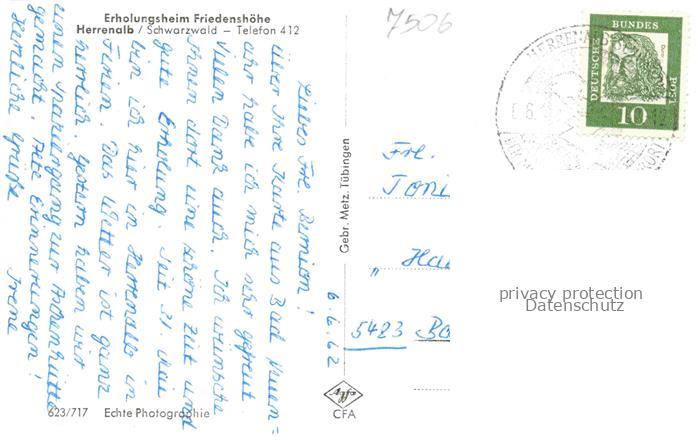 Erholungsheim Friedenshöhe
Herrenalb / Schwarzwald – Telefon 412
7506
DEUTSCHE BUNDES POST
10
HERRENALB
6.6.
Liebes Frl.
über Ihre Karte aus Bad Neuen=
ahr habe ich mich sehr gefreut
Vielen Dank auch. Ich wünsche
Ihnen dort eine schöne Zeit und
gute Erholung. Seit 31. Mai
bin ich hier in Herrenalb in
Ferien. Das Wetter ist ganz
herrlich. Gestern haben wir
einen Spaziergang zur
gemacht. Alte Erinnerungen!
Herzliche Grüße
Irene
6.6.62
Gebr. Metz, Tübingen
Frl.
Toni
" Hau
5423 Ba
privacy protection
Datenschutz
Agfa
CFA
623/717 Echte Photographie